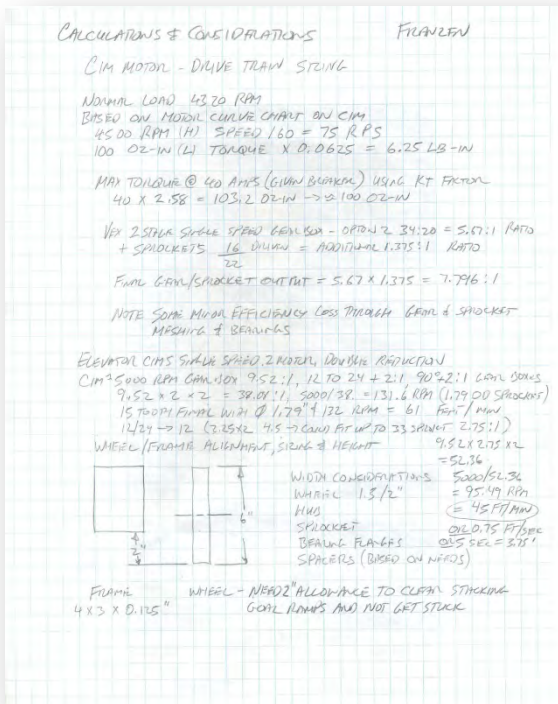 CALCULATIONS & CONSIDERATIONS FRANZEN
CIM MOTOR - DRIVE TRAIN SIZING
NORMAL LOAD 4320 RPM
BASED ON MOTOR CURVE CHART ON CIM
4500 RPM (H) SPEED /60 = 75 RPS
100 OZ-IN (L) TORQUE X 0.0625 = 6.25 LB-IN
MAX TORQUE @ 40 AMPS (GIVEN BREAKER) USING KT FACTOR
40 X 2.58 = 103.2 OZ-IN -> ≈ 100 OZ-IN
VEX 2 STAGE SINGLE SPEED GEAR BOX - OPTION 2 34:20 = 5.67:1 RATIO
+ SPROCKETS 16 DRIVEN = ADDITIONAL 1.375:1 RATIO
22
FINAL GEAR/SPROCKET OUTPUT = 5.67 X 1.375 = 7.796:1
NOTE SOME MINOR EFFICIENCY LOSS THROUGH GEAR & SPROCKET
MESHING & BEARINGS
ELEVATOR CIMS SINGLE SPEED, 2 MOTOR, DOUBLE REDUCTION
5000 RPM GEAR BOX 9.52:1, 12 TO 24 + 2:1, 90° 2:1 GEAR BOXES
9.52 X 2 X 2 = 38.01:1, 5000/38. = 131.6 RPM (1.79 OD SPROCKET)
15 TOOTH FINAL WITH Ø 1.79" & 132 RPM = 61 FEET/MIN
12/24 -> 12 (2.25X2 4.5 -> COULD FIT UP TO 33 SPROCKET 2.75:1)
WHEEL/FRAME ALIGNMENT, SIZING & HEIGHT 9.52 X 2.75 X 2
= 52.36
WIDTH CONSIDERATIONS 5000/52.36
WHEEL 1.5/2" = 95.49 RPM
6" HUB = 45 FT/MIN
SPROCKET OR 0.75 FT/SEC
2" BEARING FLANGES OR 5 SEC = 3.75'
SPACERS (BASED ON NEEDS)
FRAME WHEEL - NEED 2" ALLOWANCE TO CLEAR STACKING
4 X 3 X 0.125" GOAL RAMPS AND NOT GET STUCK